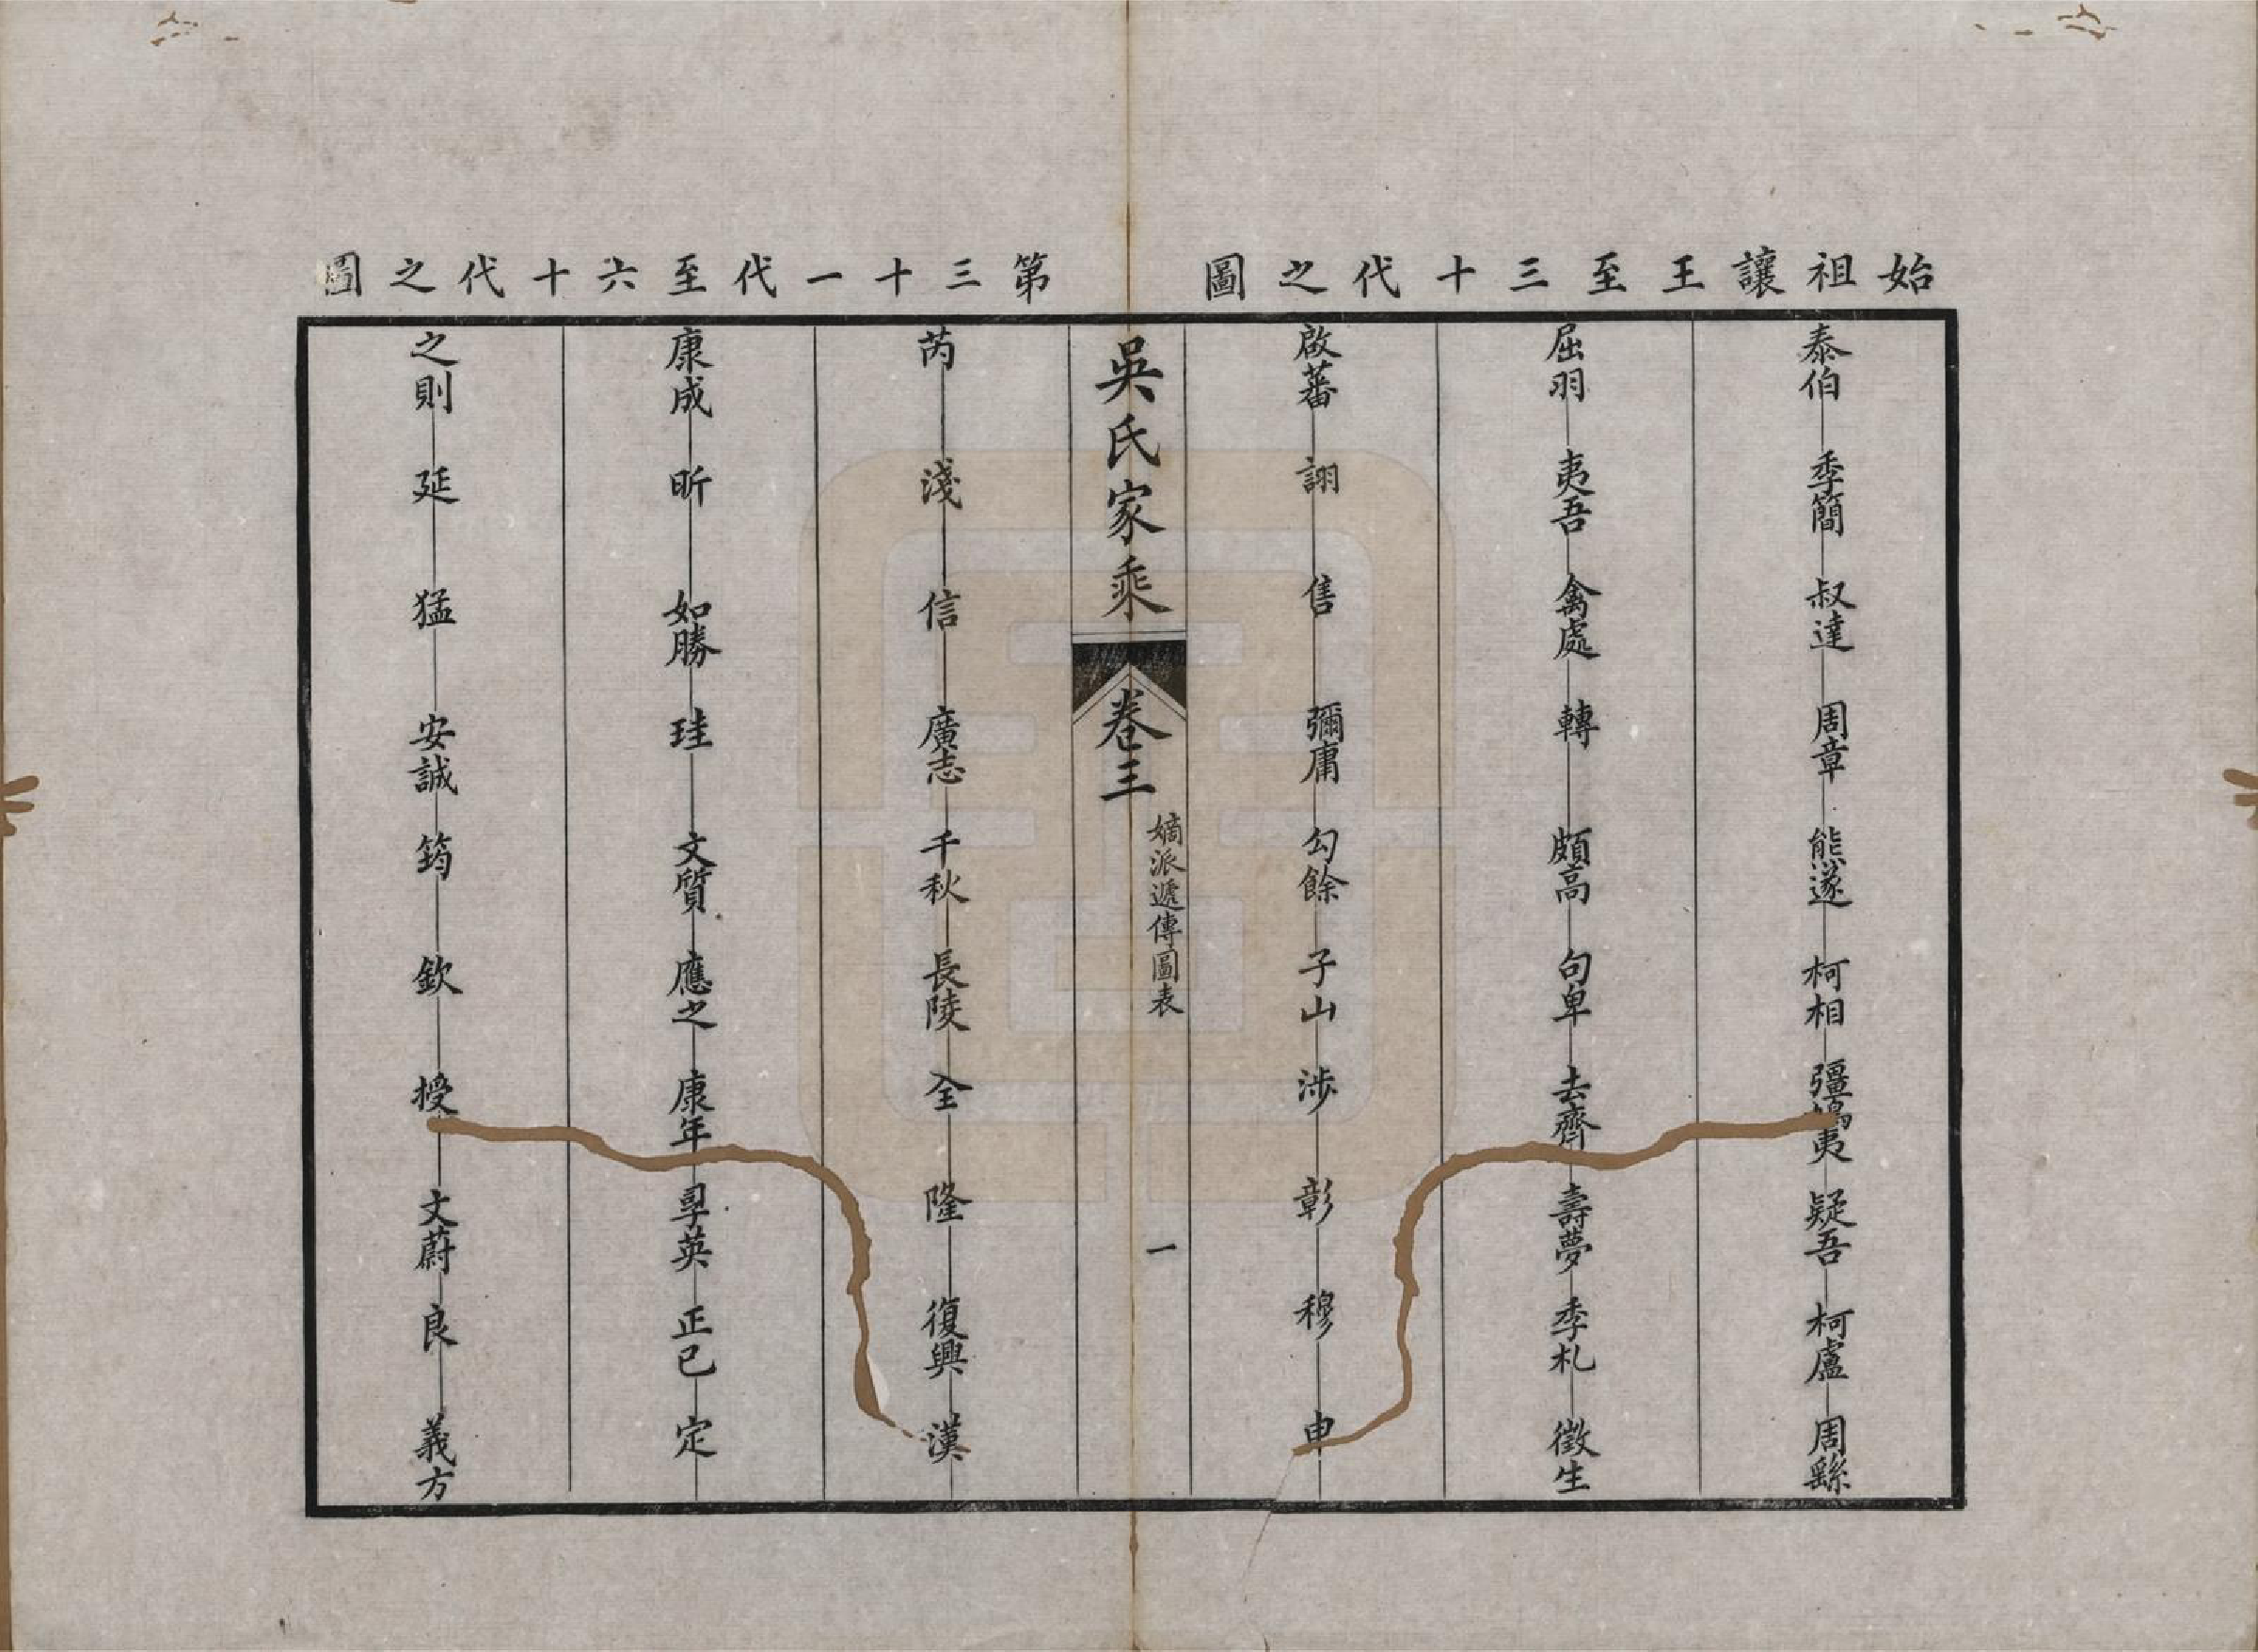 始祖讓王至三十代之圖
泰伯 季簡 叔達 周章 熊遂 柯相 彊鳩夷 疑吾 柯盧 周繇
屈羽 夷吾 禽處 轉 頗高 句卑 去齊 壽夢 季札 徵生
啟蕃 詡 售 彌庸 勾餘 子山 涉 彰 穆 申
吳氏家乘 卷三 嫡派遞傳圖表 一
第三十一代至六十代之圖
芮 淺 信 廣志 千秋 長陵 全 隆 復興 漢
康成 昕 如勝 珪 文質 應之 康年 英 正己 定
之則 延 猛 安誠 筠 欽 授 文蔚 良 義方